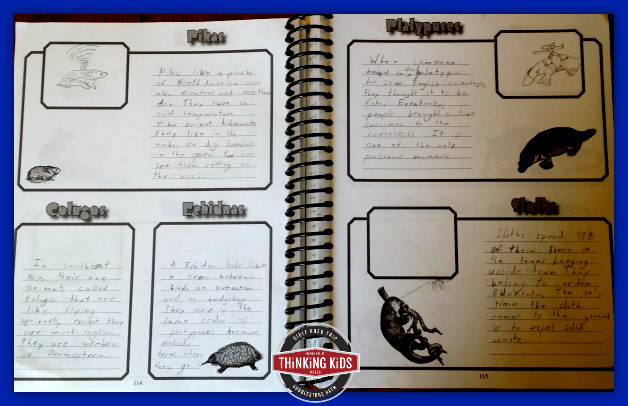 Pikas
Pikas live in parts
of North America and
also Eastern and northern
Asia. They there in
cold temperature.
Pikas do not hibernate.
They live in the
rocks, or dig burrows
in the open. You can
see them sitting on
the rocks.
Colugos
In southeast
Asia, there are
animals called
Colugos that are
like flying
squirrels, except they
are much uglier.
They are members
of Dermoptera.
Echidnas
A Echidna looks like
a cross between
birds an anteater
and a hedgehog
They are in the
same order as
platypuses because
nobody
knows where
they go
114
Platypuses
When someone
brought in a platypus
to some English scientists,
they thought it to be
fake. Eventually,
people brought a live
specimen to the
scientists. It is
one of the only
poisonous mammals.
Sloths
Sloths spend 99%
of their time in
the trees hanging
upside-down. They
belong to order
Edentata. The only
time the sloth
comes to the ground
is to expel solid
waste.
115
BIBLE ROAD TRIP
THINKING KIDS
PRESS
CORNERSTONE PATH